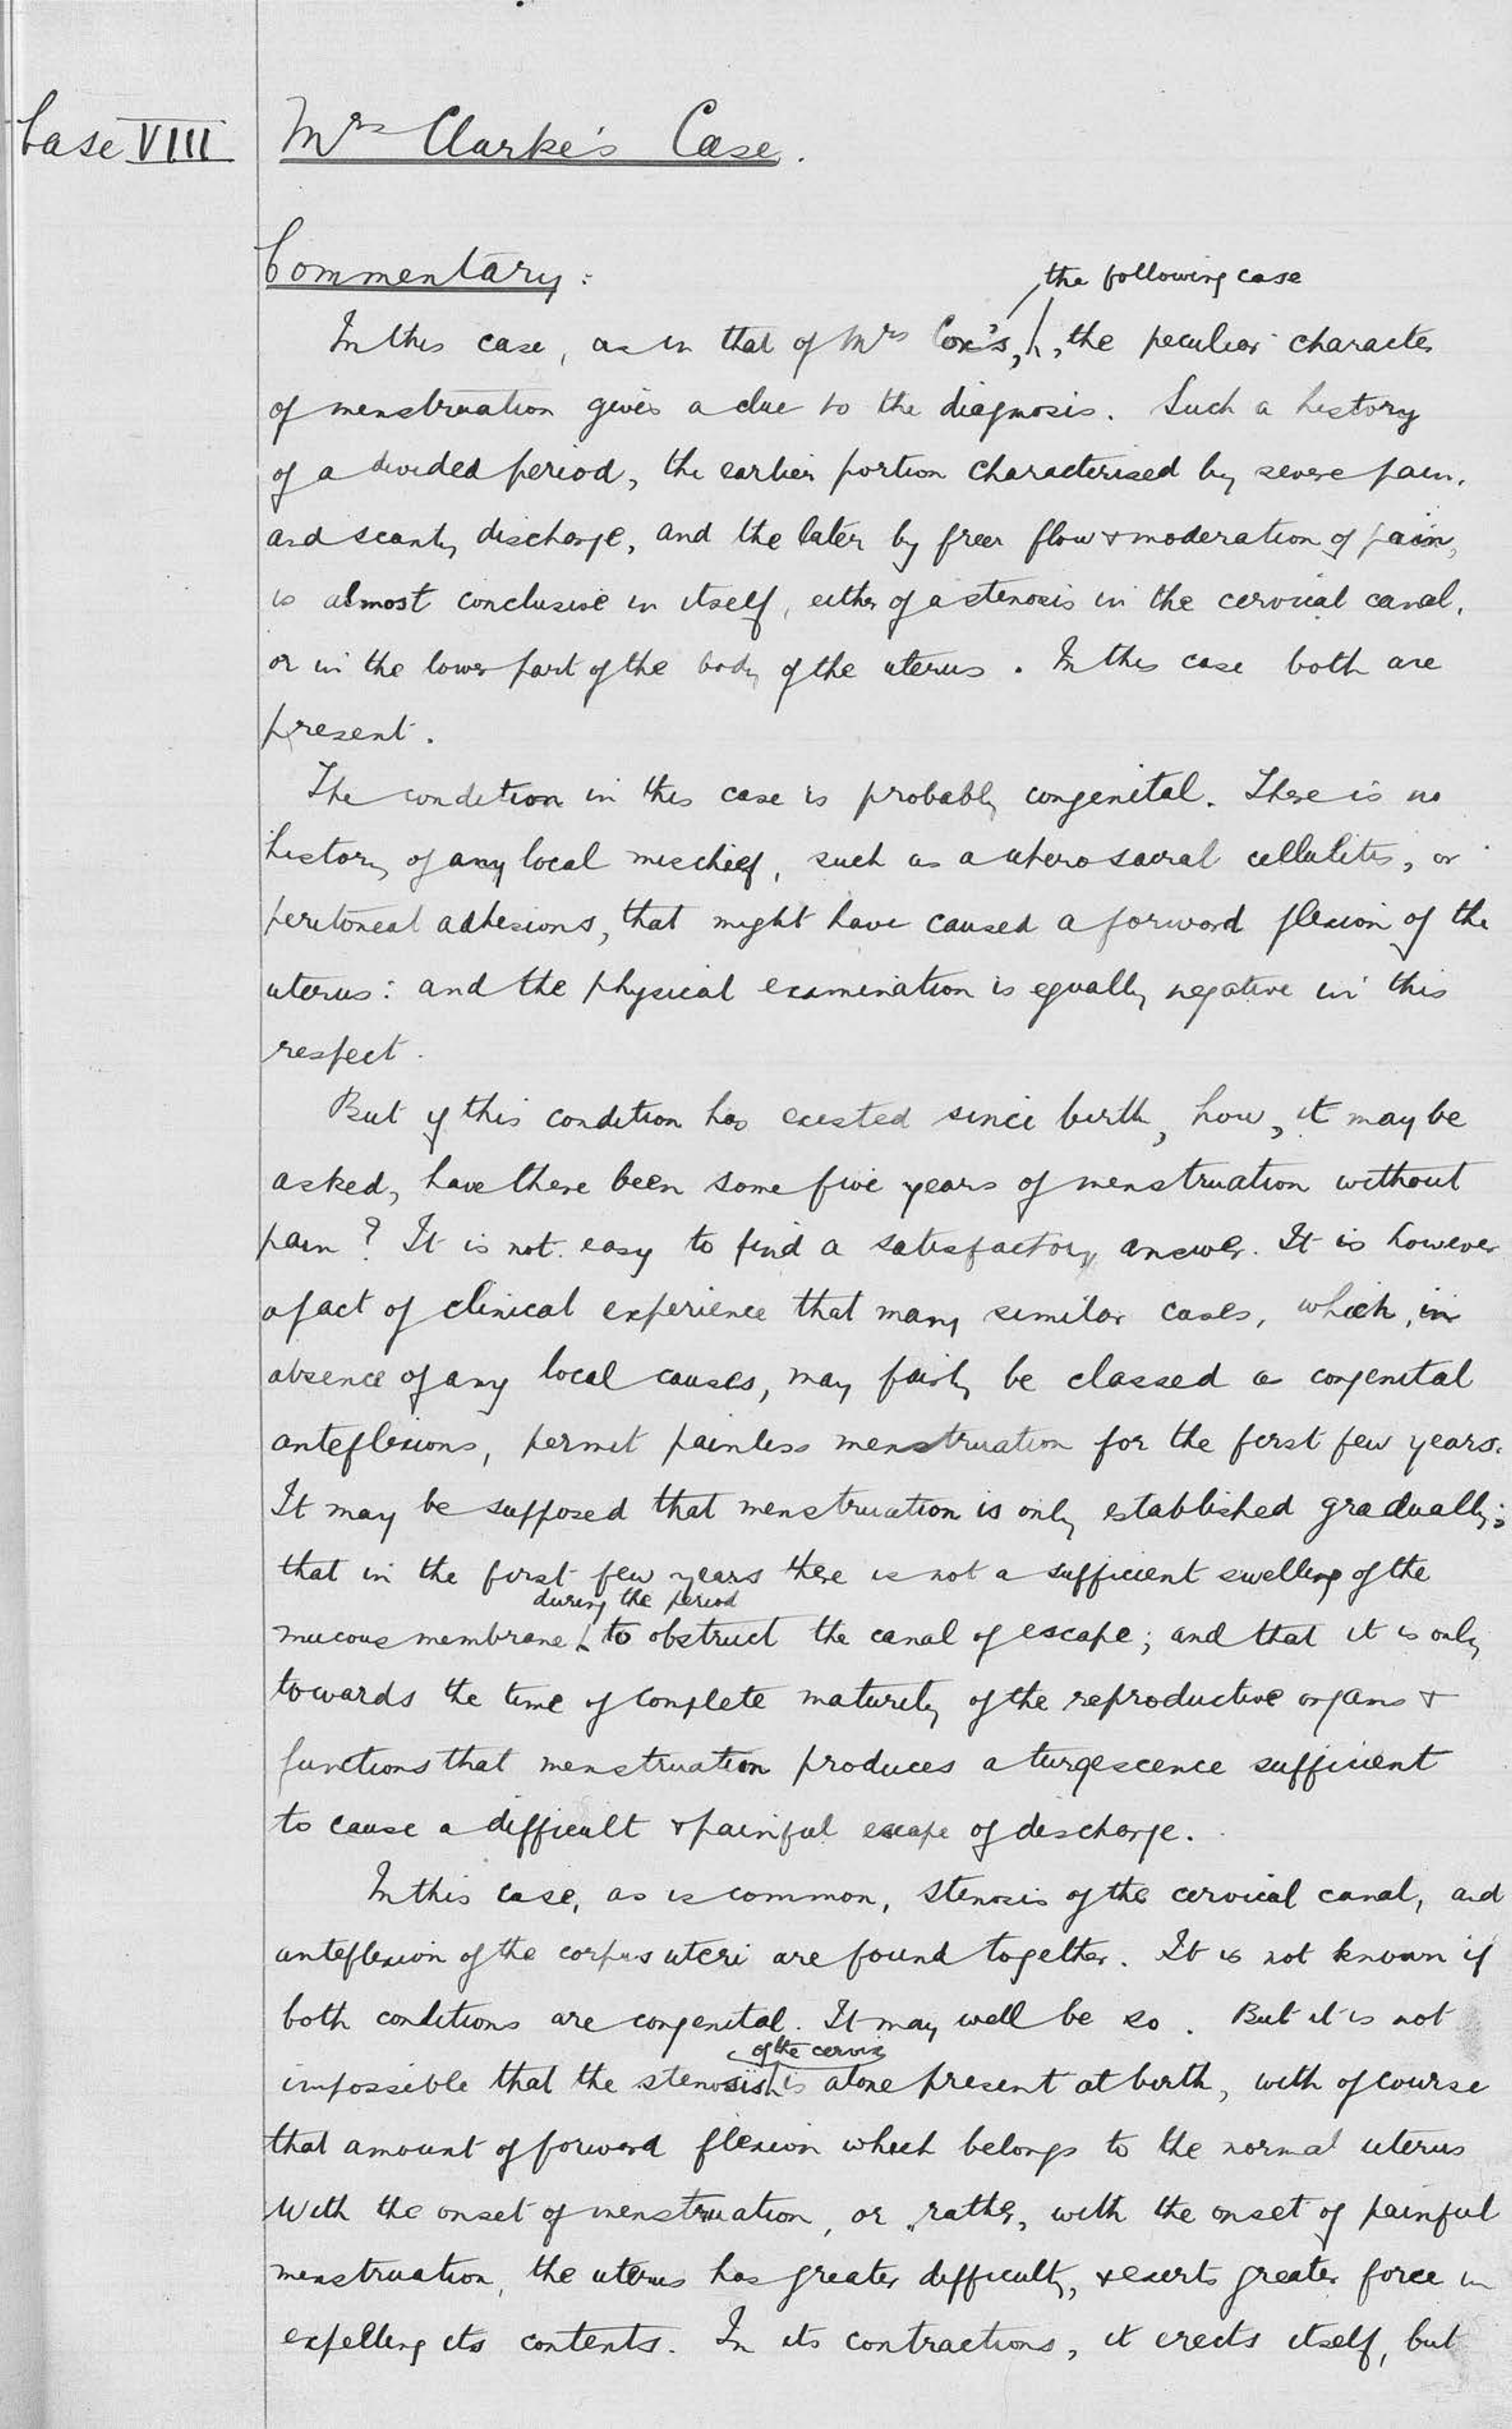 Case VIII
Mrs Clarke's Case.
Commentary:
the following case
In this case, as in that of Mrs Cox's, , the peculiar character
of menstruation gives a clue to the diagnosis. Such a history
of a divided period, the earlier portion characterised by severe pain,
and scanty discharge, and the later by freer flow & moderation of pain,
is almost conclusive in itself, either of a stenosis in the cervical canal,
or in the lower part of the body of the uterus. In this case both are
present.
The condition in this case is probably congenital. There is no
history of any local mischief, such as a utero sacral cellulitis, or
peritoneal adhesions, that might have caused a forward flexion of the
uterus: and the physical examination is equally negative in this
respect.
But if this condition has existed since birth, how, it may be
asked, have there been some five years of menstruation without
pain? It is not easy to find a satisfactory answer. It is however
a fact of clinical experience that many similar cases, which, in
absence of any local causes, may fairly be classed as congenital
anteflexions, permit painless menstruation for the first few years.
It may be supposed that menstruation is only established gradually;
that in the first few years there is not a sufficient swelling of the
during the period
mucous membrane to obstruct the canal of escape; and that it is only
towards the time of complete maturity of the reproductive organs &
functions that menstruation produces a turgescence sufficient
to cause a difficult & painful escape of discharge.
In this case, as is common, stenosis of the cervical canal, and
anteflexion of the corpus uteri are found together. It is not known if
both conditions are congenital. It may well be so. But it is not
of the cervix
impossible that the stenosis is alone present at birth, with of course
that amount of forward flexion which belongs to the normal uterus
With the onset of menstruation, or rather, with the onset of painful
menstruation, the uterus has greater difficulty, & exerts greater force in
expelling its contents. In its contractions, it erects itself, but